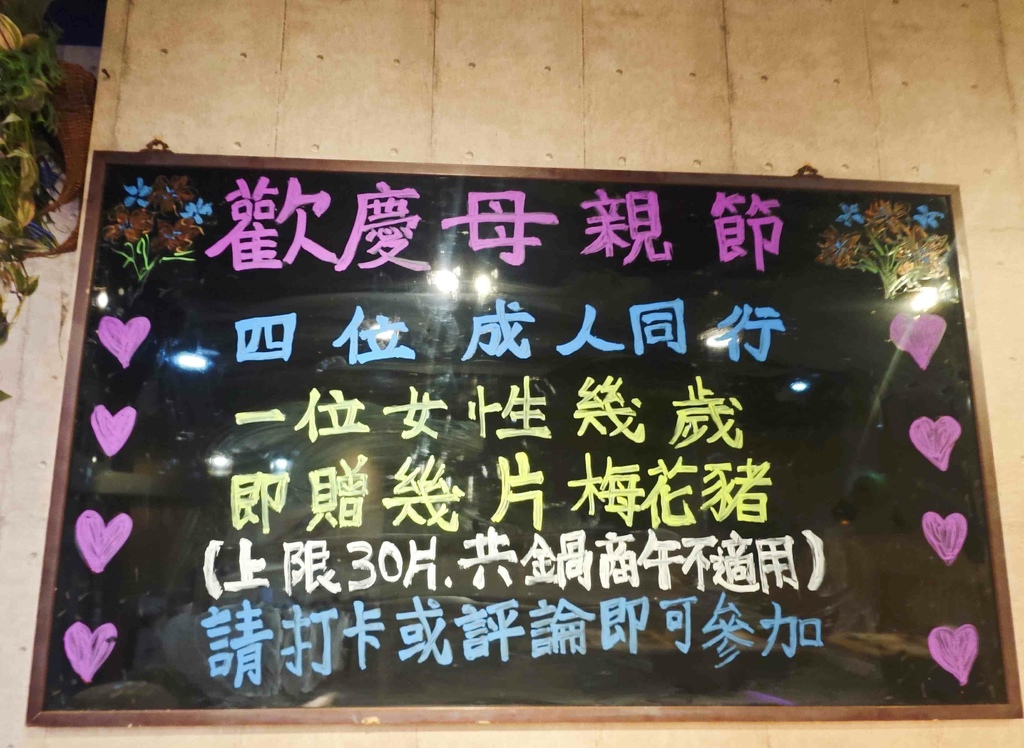 歡慶母親節
四位成人同行
一位女性幾歲
即贈幾片梅花豬
(上限30片.共鍋商午不適用)
請打卡或評論即可參加